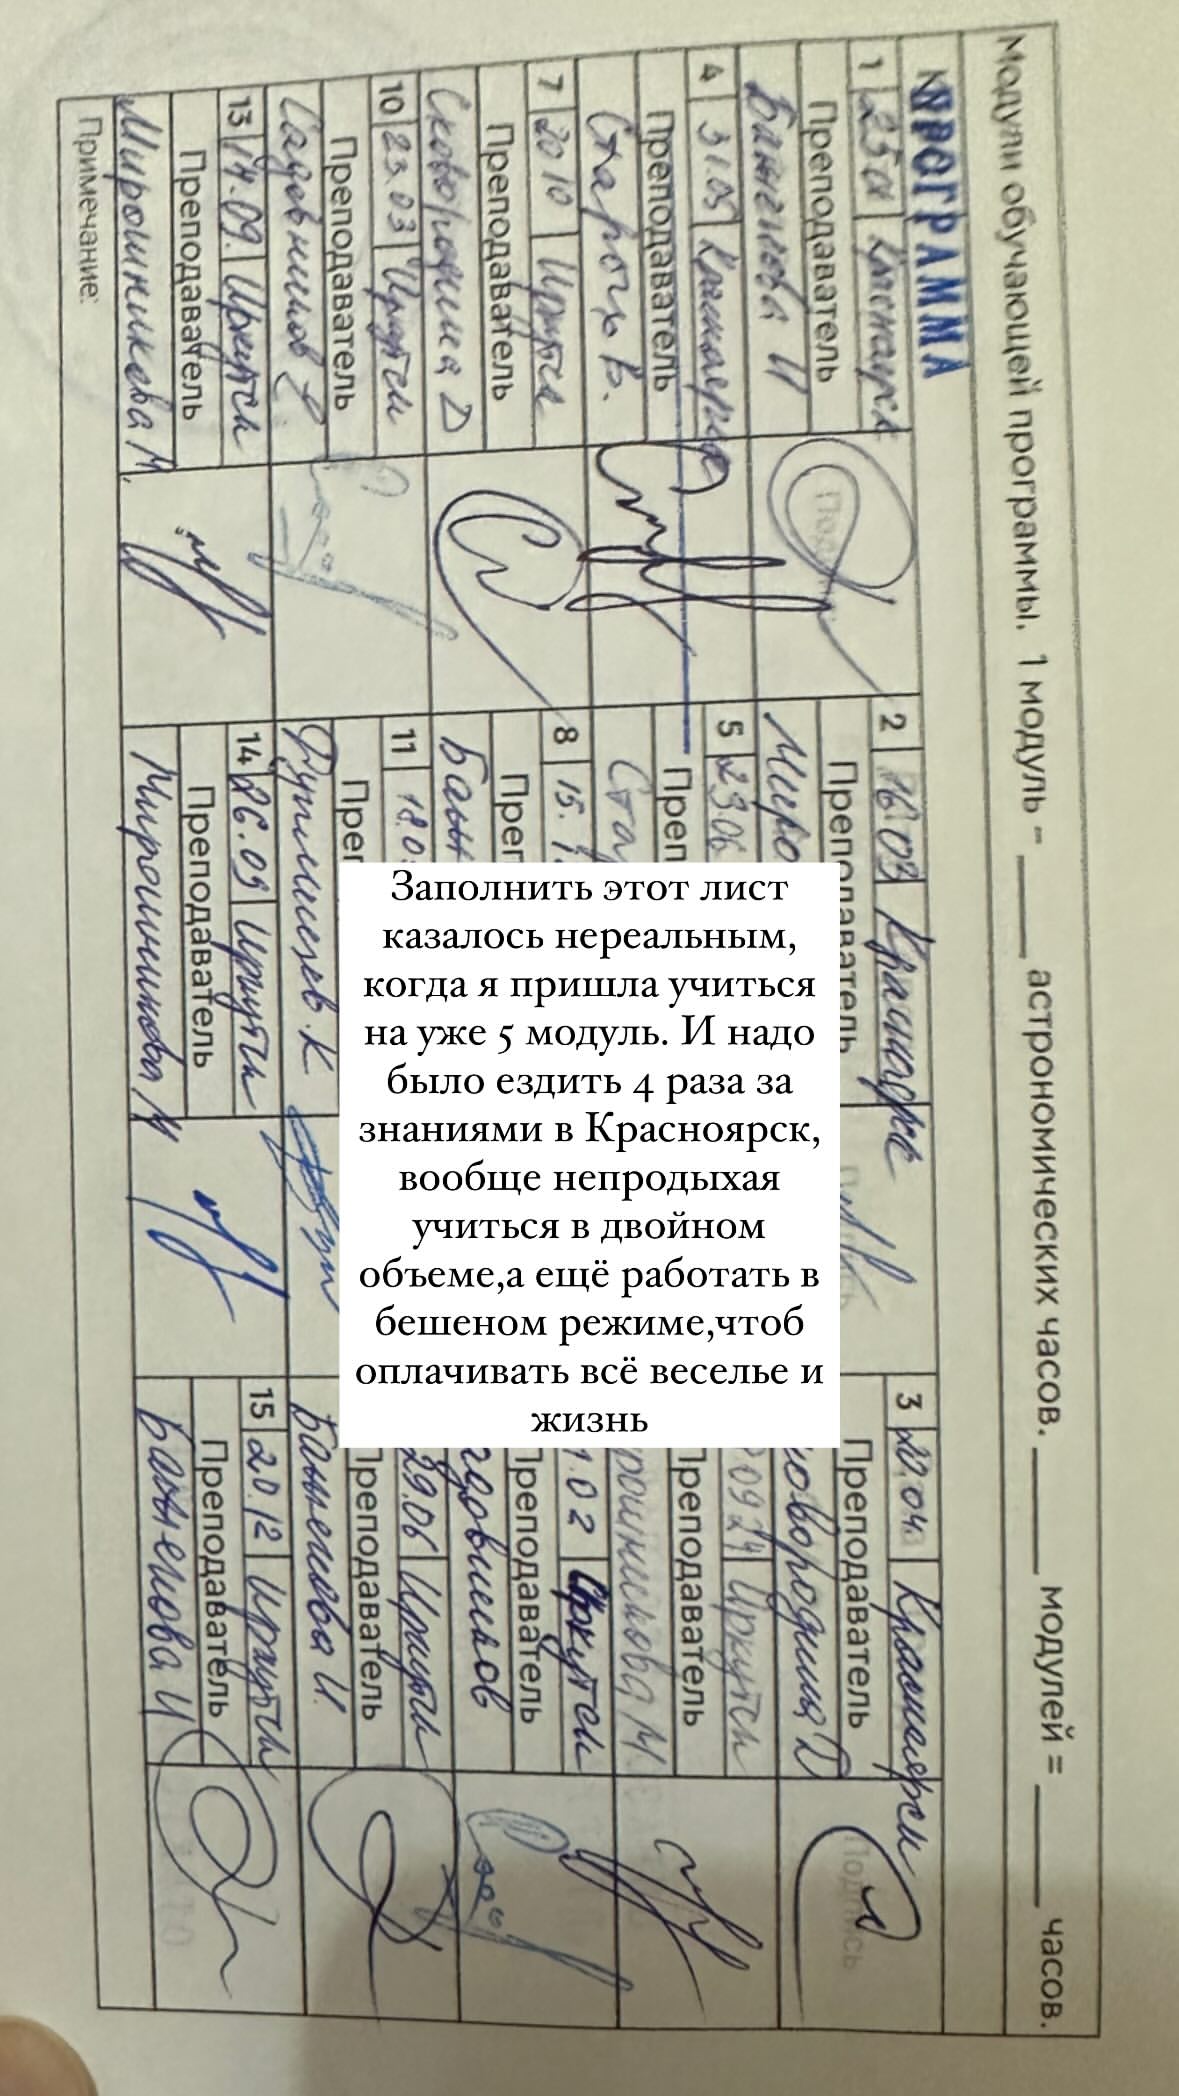 Модули обучающей программы. 1 модуль – ____ астрономических часов. ____ модулей = ____ часов.
ПРОГРАММА
1 25.01 Красноярск
Преподаватель
Баньенова И
2 16.03 Красноярск
Преподаватель
3 20.04 Красноярск
Преподаватель
Подпись
4 31.05 Красноярск
Преподаватель
Староць В.
5 23.06
Преп
09 24 Иркутск
Преподаватель
7 20 10 Иркутск
Преподаватель
Сковородина Д
8 15.
Преп
1.02 Иркутск
Преподаватель
10 23.03 Иркутск
Преподаватель
Садовников
11 18.0
Преп
29.06 Иркутск
Преподаватель
13 14.09. Иркутск
Преподаватель
Мирошникова М.
14 26.09 Иркутск
Преподаватель
Мирошникова М
15 20.12 Иркутск
Преподаватель
Примечание:
Заполнить этот лист
казалось нереальным,
когда я пришла учиться
на уже 5 модуль. И надо
было ездить 4 раза за
знаниями в Красноярск,
вообще непродыхая
учиться в двойном
объеме,а ещё работать в
бешеном режиме,чтоб
оплачивать всё веселье и
жизнь